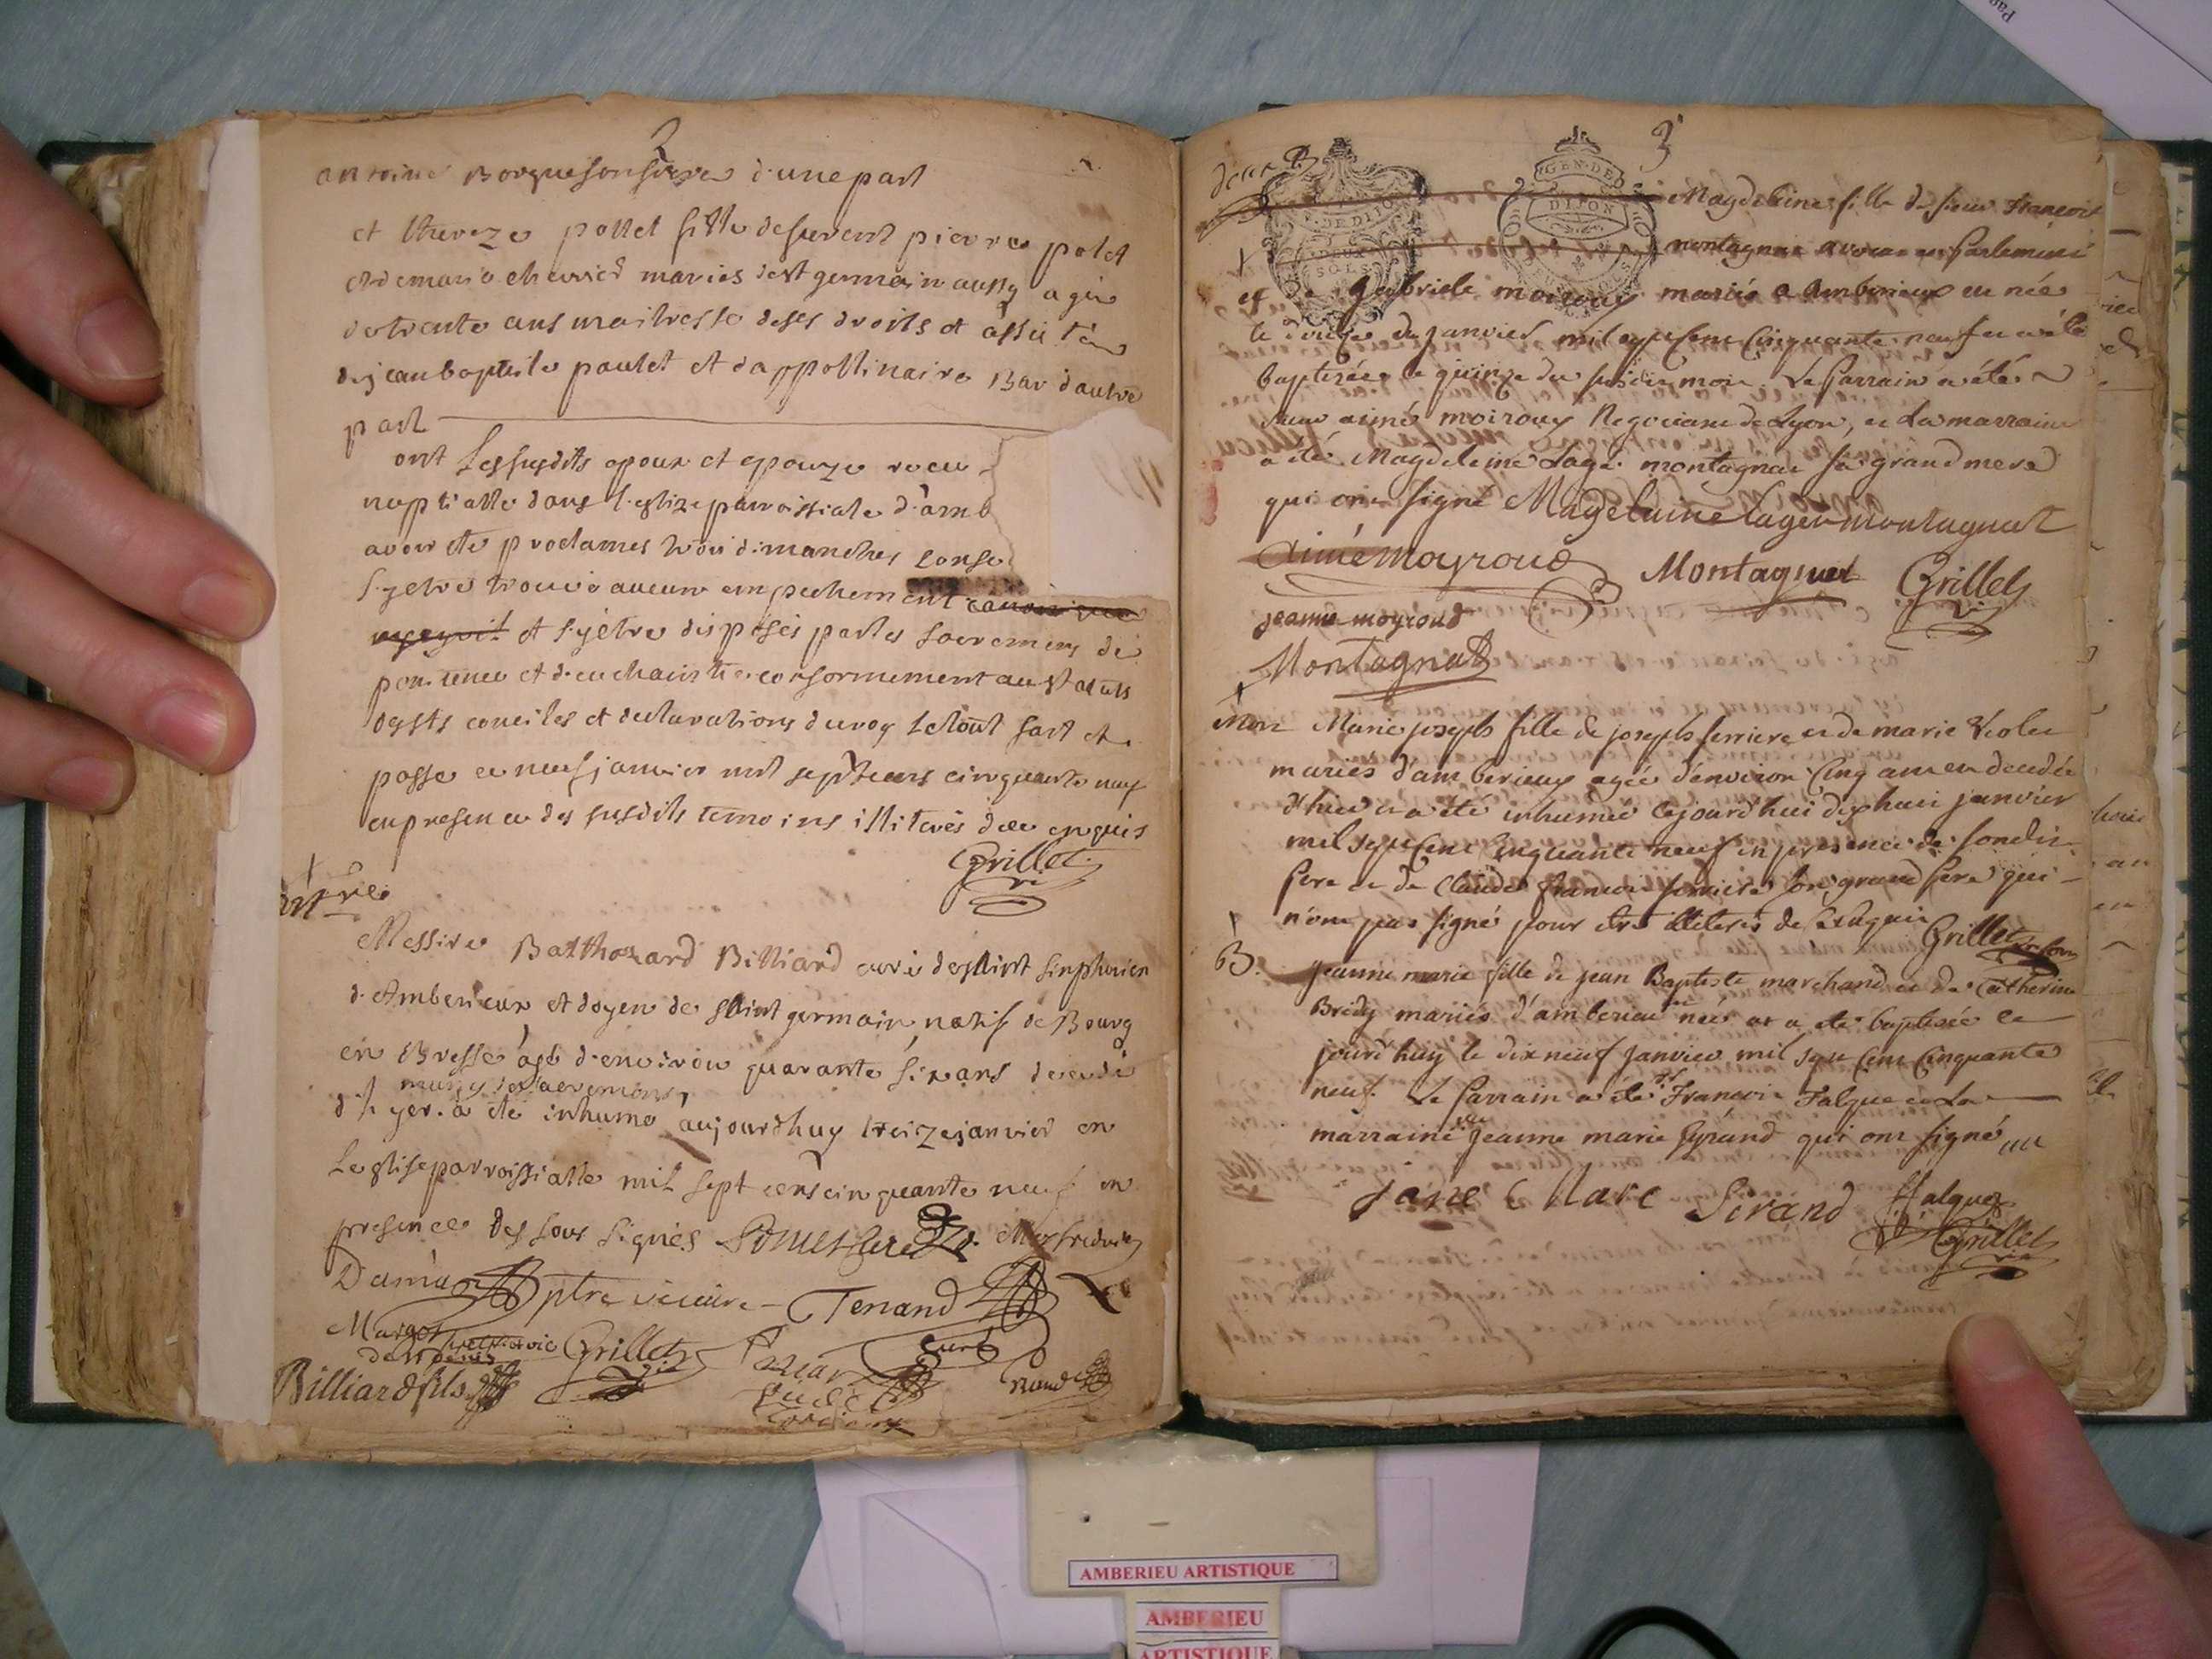 2
antoine Borgue son frere d'une part
et thereze pollet fille de furent pierre polet
et de marie chevrier mariés de st germain aussy agée
de trente ans maitresse de ses droits et assistée
de jean baptiste paulet et d'appollinaire Bar d'autre
part
ont les susdits epoux et epouze recu
nuptialle dans l'eglize parroissiale d'amb
avoir eté proclamés trois dimanches conse
s'yetre trouvé aucun empechement
et s'yêtre disposés par les sacremens de
penitence et d'eucharistie conformement aux statuts
des sts conciles et declarations du roy le tout fait et
passé ce neuf janvier mil sept cens cinquante neuf
en presence des susdits temoins illiterés de ce enquis
Grillet
vi
Messire Balthazard Billiard curé de saint Sinphorien
d'Amberieux et doyen de saint germain, natif de Bourg
en Bresse agé d'environ quarante six ans decedé
muny des sacremens,
d'hyer. a été inhumé aujourdhuy treize janvier en
Leglise parroissialle mil sept cens cinquante neuf en
presence des sous signés
ptre vicaire - Tenand
curé
Grillet
Billiard fils
3
GEN. DE
DIJON
DE DIJON
DEUX
SOLS
Magdeleine fille de sieur François
montagnat avocat en parlement
et de Gabriele moiroux mariés a Amberieux est née
le douze de janvier mil sept cent cinquante neuf et a été
baptisée le quinze du susdit mois. Le parrain a été
sieur aimé moiroux Negociant de Lyon, et La marraine
a été Magdeleine Lagé montagnat sa grand mere
qui ont signé Magelaine lager montagnat
Aimé Moyroud Montagnat Grillet
jeanne moyroud
Montagnat
Mort Marie joseph fille de joseph ferriere et de marie Violet
mariés d'amberieux agée d'environ cinq ans est decedée
d'hier et a été inhumée cejourd'hui dix huit janvier
mil sept cent cinquante neuf en presence de son dit
pere et de Claude françois ferriere son grand pere qui
n'ont pas signé pour etre illiterés de ce enquis Grillet
B. jeanne marie fille de jean Baptiste marchand et de Catherine
Bredy mariés d'amberieu née et a été baptisée ce
jourd'huy le dix neuf janvier mil sept cent cinquante
neuf. Le parrain a été sr François Falque et La
marraine dlle jeanne marie Syrand qui ont signé
jane Marie Sirand Falque
Grillet
AMBERIEU ARTISTIQUE
AMBERIEU
ARTISTIQUE